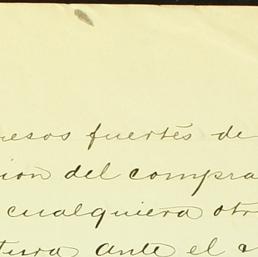 pesos fuertes de
cion del compra
cualquiera otr
tura ante el